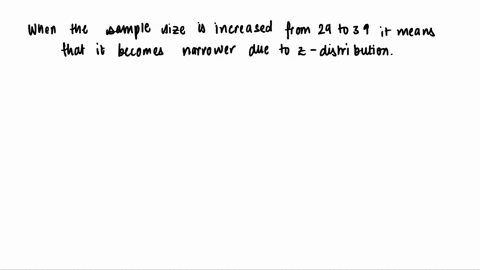 When the sample size is increased from 29 to 39 it means
that it becomes narrower due to z-distribution.